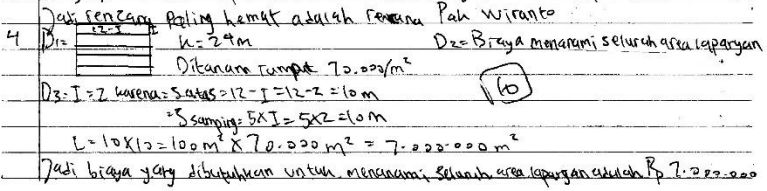 Jadi rencana paling hemat adalah rencana Pak Wiranto
4 D1= 12-I I K=24m D2= Biaya menanami seluruh area lapangan
Ditanam rumput 70.000/m²
D3: I=2 karena: S atas=12-I=12-2=10m 10
=S samping=5XI=5X2=10m
L=10X10=100m²X70.000m²=7.000.000m²
Jadi biaya yang dibutuhkan untuk menanami seluruh area lapangan adalah Rp 7.000.000